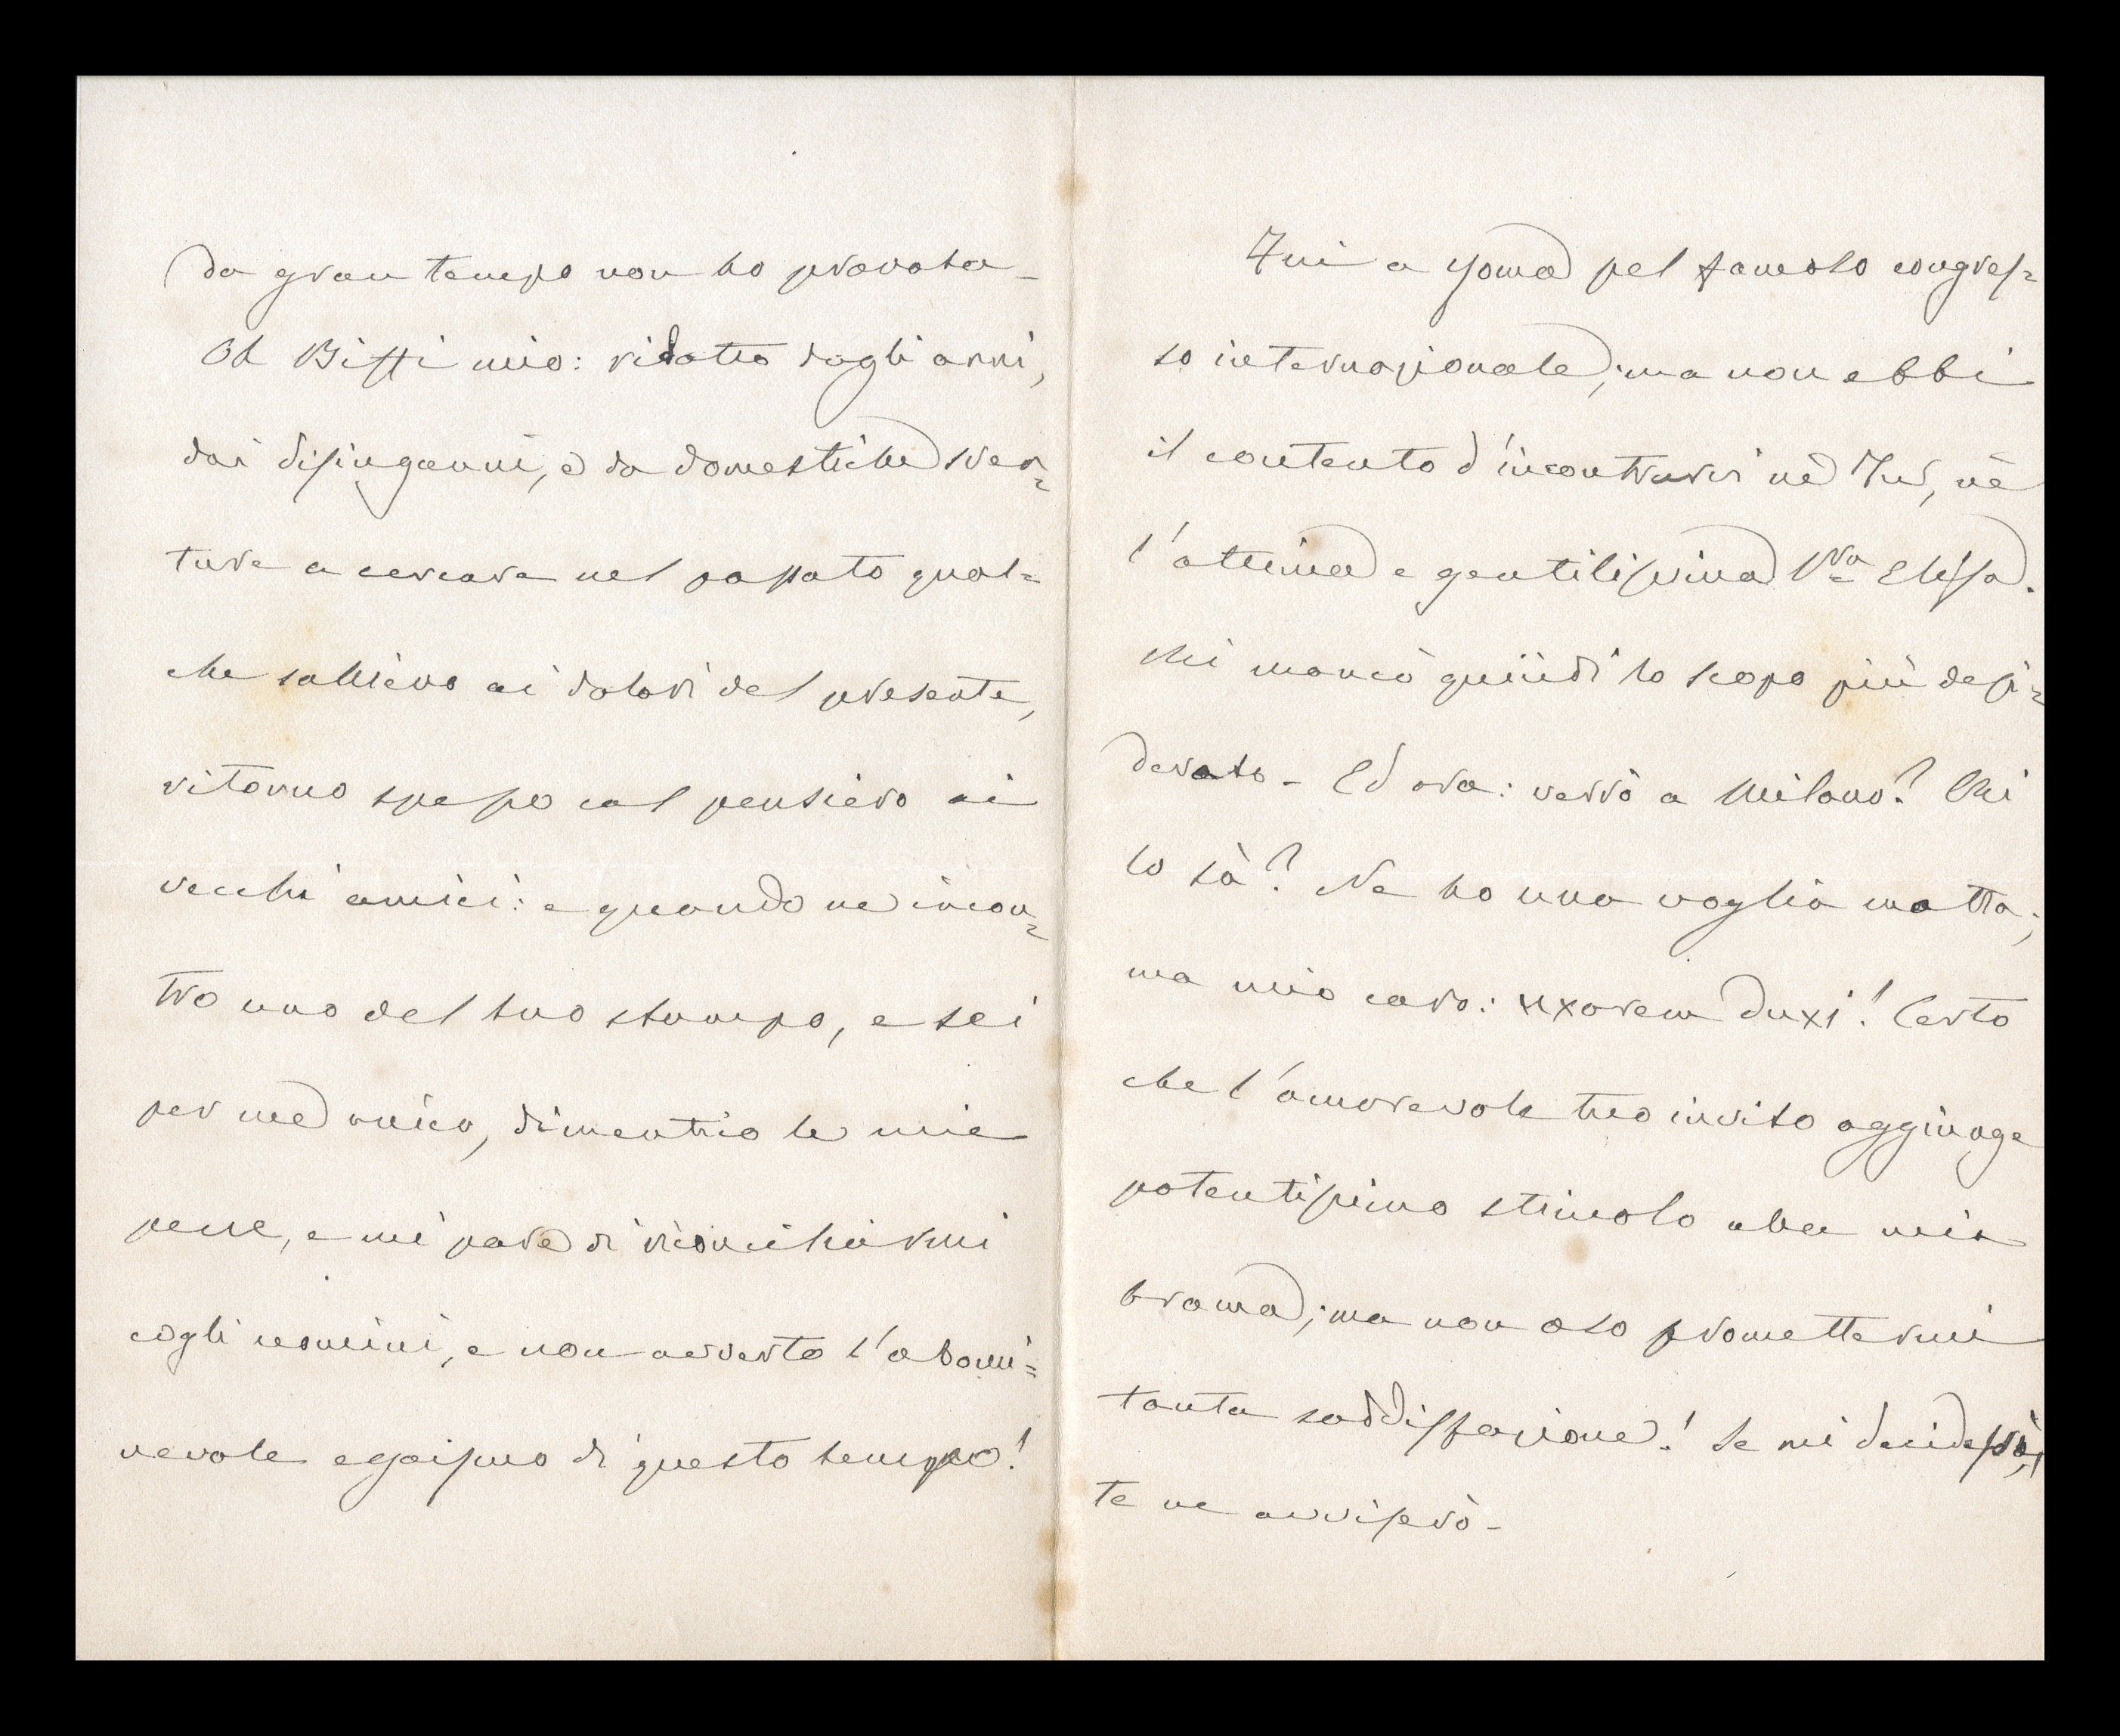 da gran tempo non ho provata -
Oh Biffi mio: ridotto dagli anni,
dai disinganni, e da domestiche sven=
ture a cercare nel passato qual=
che sollievo ai dolori del presente,
ritorno spesso col pensiero ai
vecchi amici: e quando ne incon=
tro uno del tuo stampo, e sei
per me unico, dimentico le mie
pene, e mi pare di riconciliarmi
cogli uomini, e non avverto l'abomi=
nevole egoismo di questo tempo!
Fui a Roma pel famoso congres=
so internazionale; ma non ebbi
il contento d'incontrarvi nè Tu, nè
l'ottima e gentilissima Sra Elisa.
Mi mancò quindi lo scopo più desi=
derato - Ed ora: verrò a Milano? Chi
lo sà? Ne ho una voglia matta;
ma mio caro: uxorem duxi! Certo
che l'amorevole tuo invito aggiunge
potentissimo stimolo alla mia
brama; ma non oso promettermi
tanta soddisfazione! Se mi deciderò,
te ne avviserò -